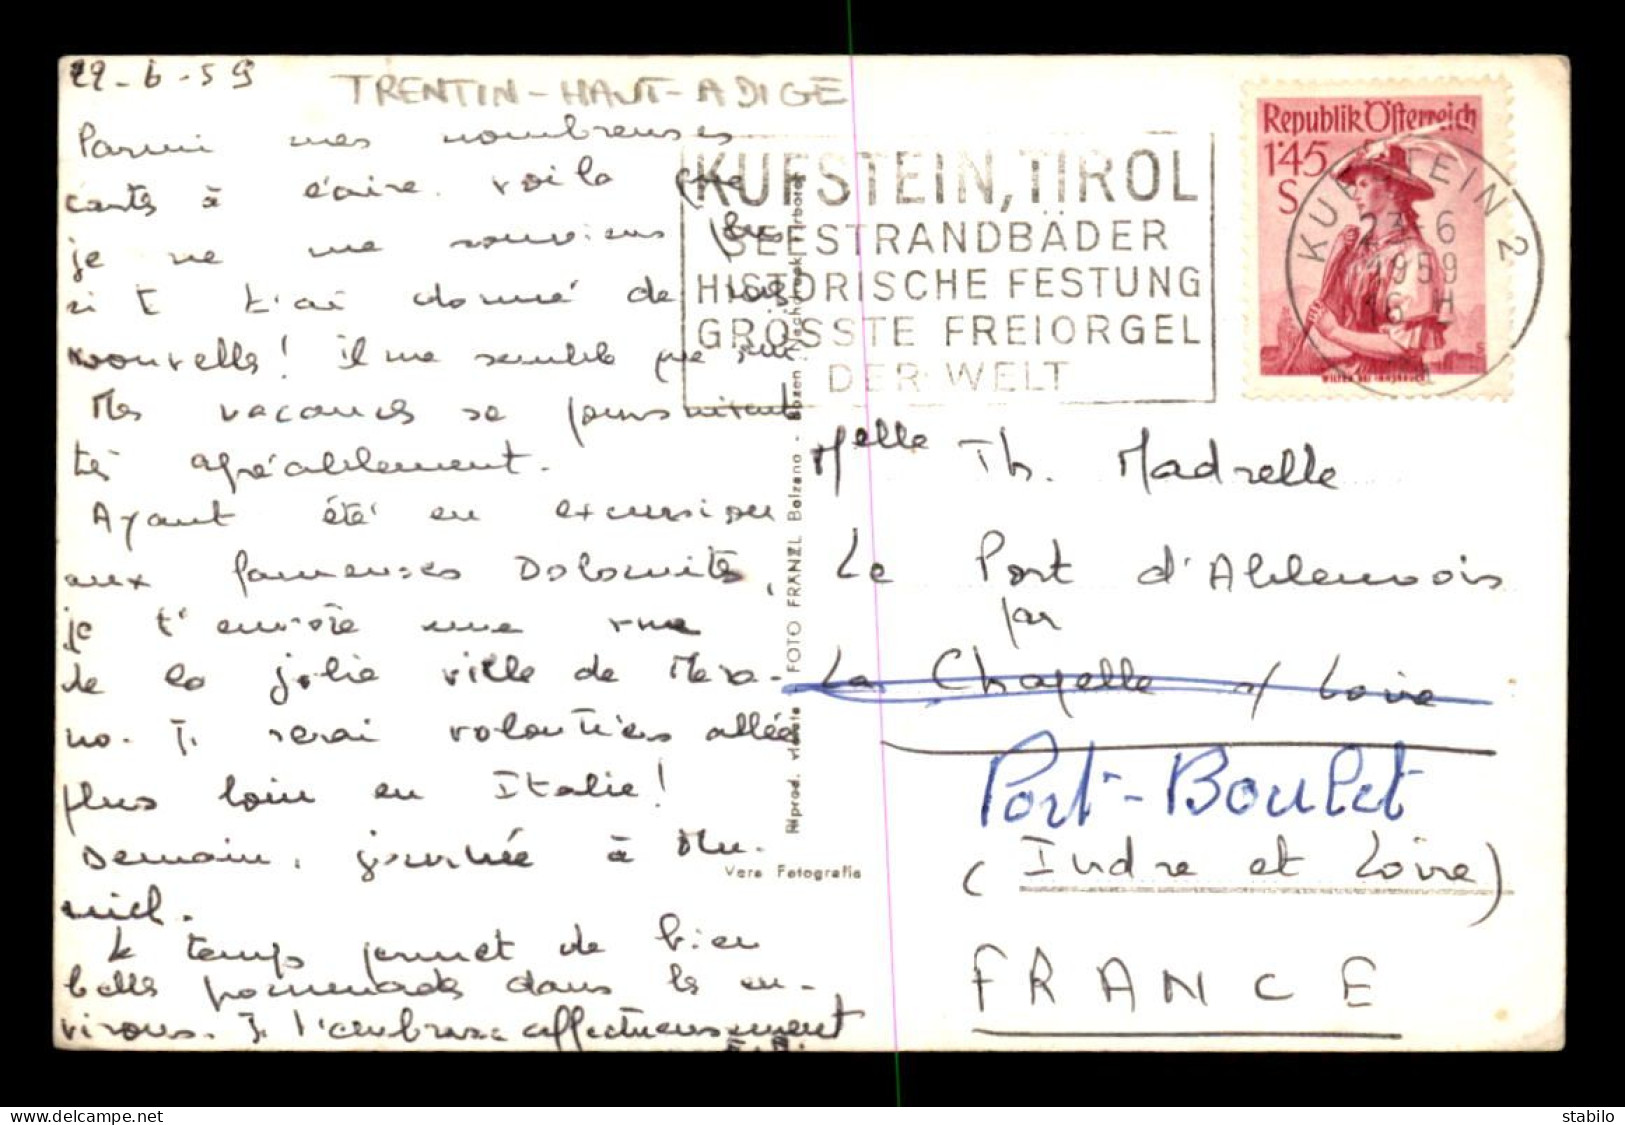 22-6-59
TRENTIN-HAUT-ADIGE
Parmi mes nombreuses
cartes à écrire. voilà que
je ne me souviens plus
si t'ai donné de mes
nouvelles! Il me semble que oui
Mes vacances se poursuivent
très agréablement.
Ayant été en excursion
aux fameuses Dolomites,
je t'envoie une vue
de la jolie ville de Mera-
no. Je serai volontiers allée
plus loin en Italie!
Demain, journée à Mu-
nich.
Le temps permet de bien
belles promenades dans les en-
virons. Je t'embrasse affectueusement
KUFSTEIN, TIROL
SEESTRANDBÄDER
HISTORISCHE FESTUNG
GRÖSSTE FREIORGEL
DER WELT
Republik Österreich
1'45
S
KUFSTEIN 2
23-6
1959
16 H
Réprod. vietate FOTO FRANZL Bolzano - Bozen - Nachdruck verboten
Vera Fotografia
Melle Th. Madrelle
Le Port d'Ablevois
par
La Chapelle s/ Loire
Port-Boulet
(Indre et Loire)
FRANCE
stabilo